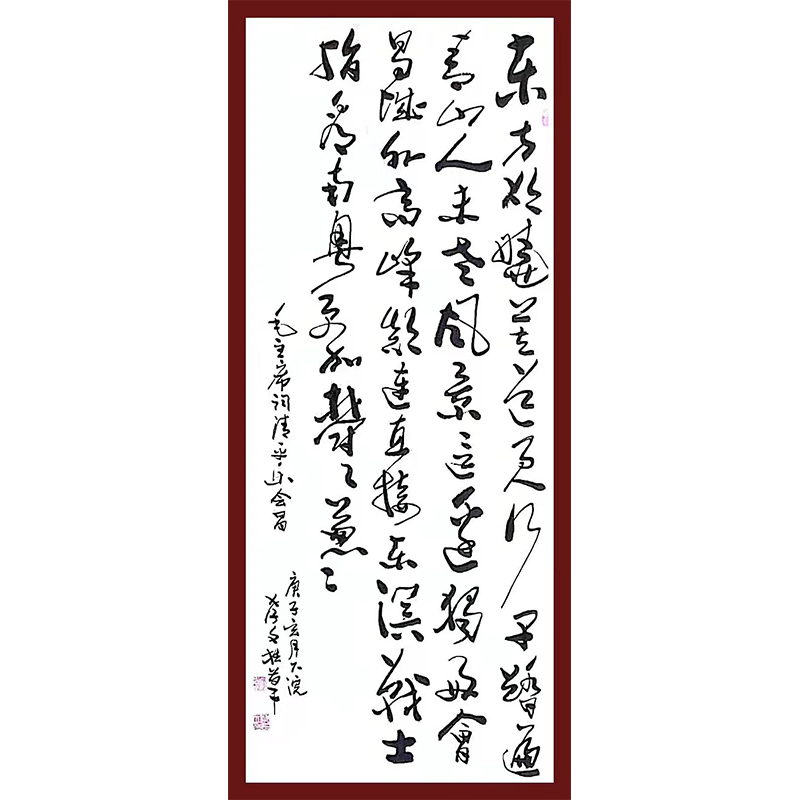 东方欲曉莫道君行早踏遍
青山人未老风景这边独好會
昌城外高峰颠連直接东溟战士
指看南粤更加郁々葱々
毛主席词清平乐会昌
庚子亥月